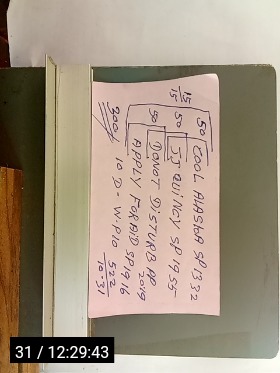 15
15
50 COOL ALASKA SP 1332
50 JJ QUINCY SP 1955
50 DONOT DISTURB AP 2019
APPLY FOR AID SP 1916
300/ 10 D - W-P10 522
10-31
31 / 12:29:43